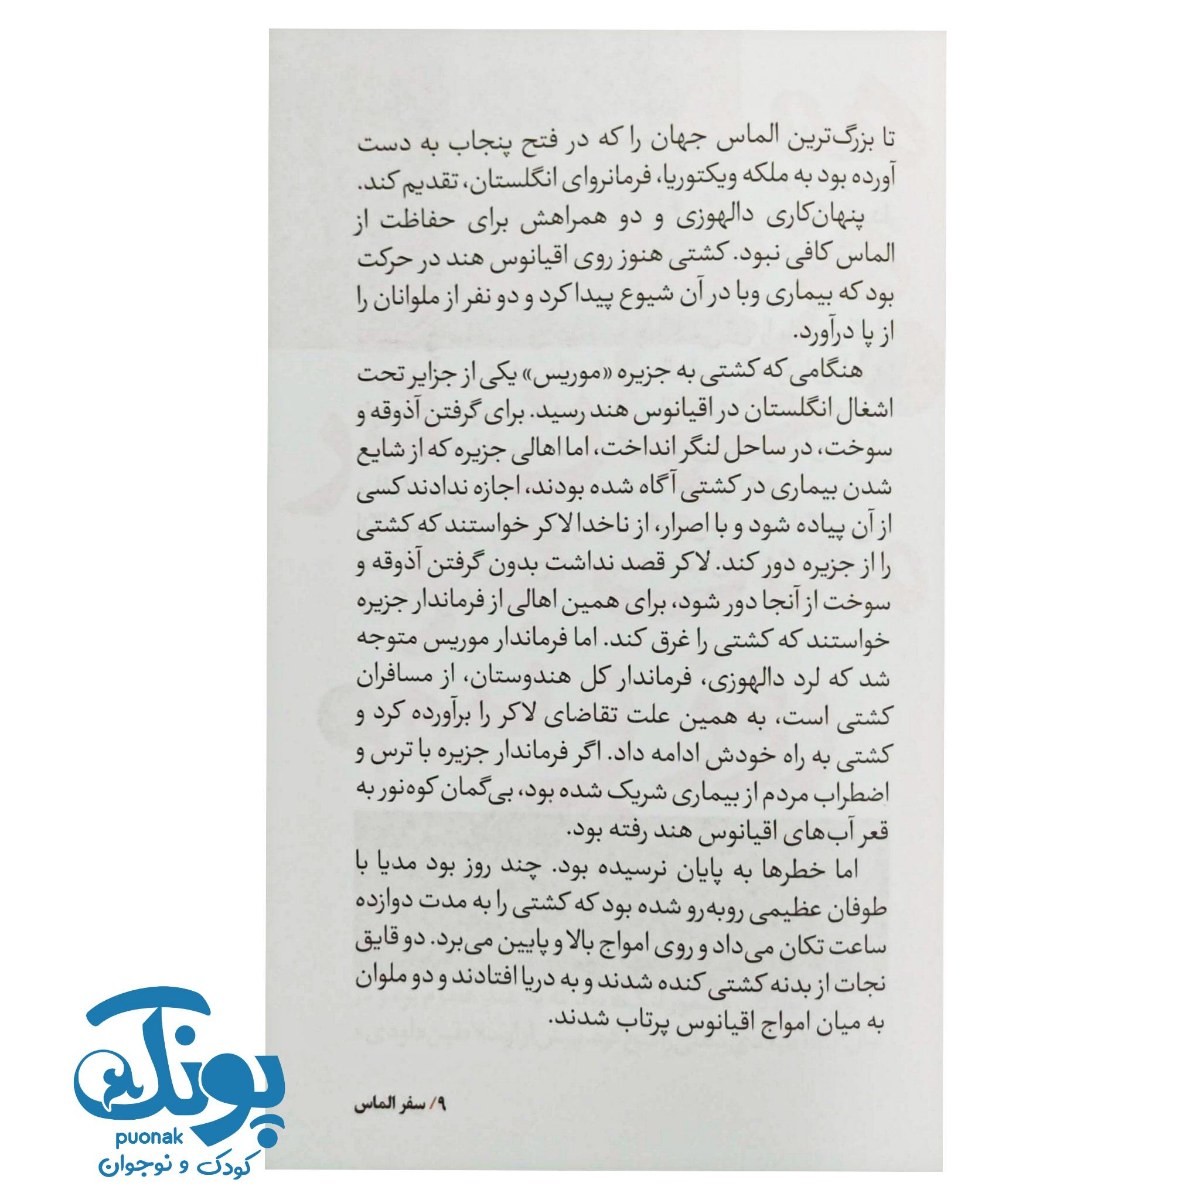 تا بزرگ‌ترین الماس جهان را که در فتح پنجاب به دست
آورده بود به ملکه ویکتوریا، فرمانروای انگلستان، تقدیم کند.
پنهان‌کاری دالهوزی و دو همراهش برای حفاظت از
الماس کافی نبود. کشتی هنوز روی اقیانوس هند در حرکت
بود که بیماری وبا در آن شیوع پیدا کرد و دو نفر از ملوانان را
از پا درآورد.
هنگامی که کشتی به جزیره «موریس» یکی از جزایر تحت
اشغال انگلستان در اقیانوس هند رسید. برای گرفتن آذوقه و
سوخت، در ساحل لنگر انداخت، اما اهالی جزیره که از شایع
شدن بیماری در کشتی آگاه شده بودند، اجازه ندادند کسی
از آن پیاده شود و با اصرار، از ناخدا لاکر خواستند که کشتی
را از جزیره دور کند. لاکر قصد نداشت بدون گرفتن آذوقه و
سوخت از آنجا دور شود، برای همین اهالی از فرماندار جزیره
خواستند که کشتی را غرق کند. اما فرماندار موریس متوجه
شد که لرد دالهوزی، فرماندار کل هندوستان، از مسافران
کشتی است، به همین علت تقاضای لاکر را برآورده کرد و
کشتی به راه خودش ادامه داد. اگر فرماندار جزیره با ترس و
اضطراب مردم از بیماری شریک شده بود، بی‌گمان کوه‌نور به
قعر آب‌های اقیانوس هند رفته بود.
اما خطرها به پایان نرسیده بود. چند روز بود مدیا با
طوفان عظیمی روبه‌رو شده بود که کشتی را به مدت دوازده
ساعت تکان می‌داد و روی امواج بالا و پایین می‌برد. دو قایق
نجات از بدنه کشتی کنده شدند و به دریا افتادند و دو ملوان
به میان امواج اقیانوس پرتاب شدند.
۹/ سفر الماس
پونک
puonak
کودک و نوجوان